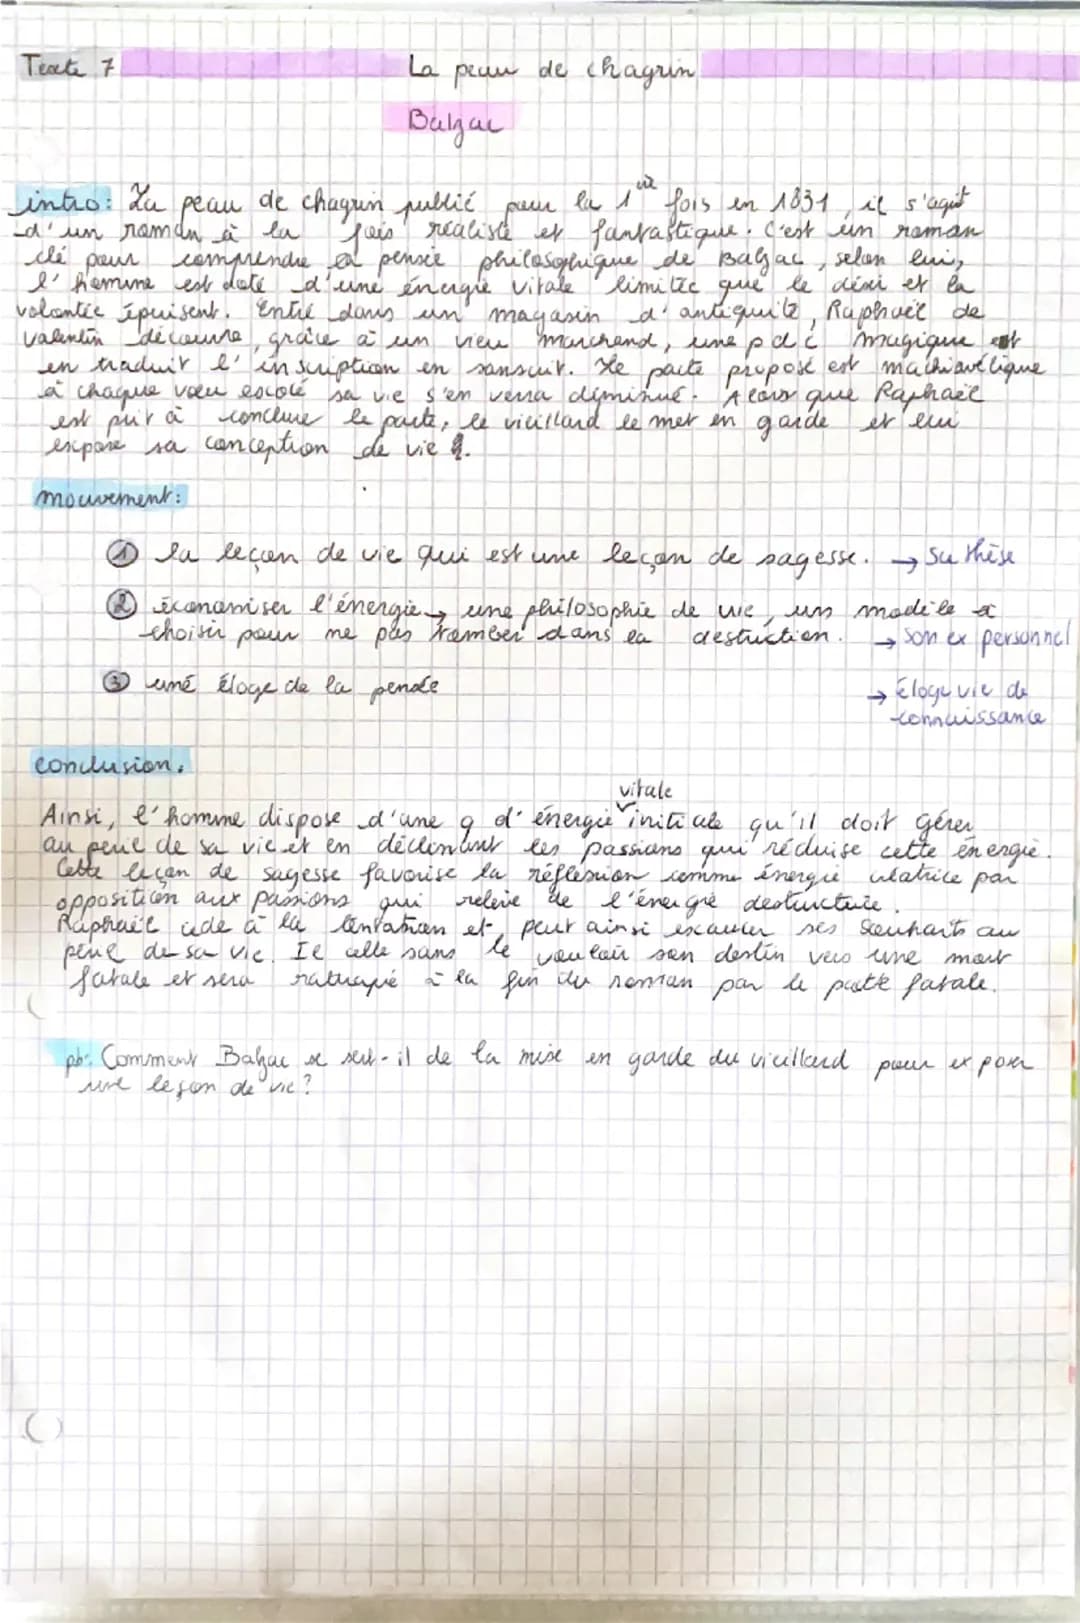 Texte 7
La peau de chagrin
Balzac
intro: La peau de chagrin publié pour la 1ère fois en 1831, il s'agit
d'un roman à la fois réaliste et fantastique. C'est un roman
clé pour comprendre la pensée philosophique de Balzac, selon lui,
l'homme est doté d'une énergie vitale limitée que le désir et la
volontée épuisent. Entré dans un magasin d'antiquité, Raphaël de
valentin découvre, grâce à un vieu marchand, une pdc magique et
en traduit l'inscription en sanscrit. Le pacte proposé est machiavélique
à chaque vœu sa vie s'en verra diminué. Alors que Raphaël
est prêt à conclure le pacte, le vieillard le met en garde et lui
expose sa conception de vie.
mouvement:
① la leçon de vie qui est une leçon de sagesse. → Sa thèse
② économiser l'énergie → une philosophie de vie, un modèle à
choisir pour ne pas tomber dans la destruction. → Son ex personnel
③ une éloge de la pensée
→ Éloge vie de
connaissance
conclusion.
vitale
Ainsi, l'homme dispose d'une q d'énergie initiale qu'il doit gérer
au péril de sa vie et en déclinant les passions qui réduise cette énergie.
Cette leçon de sagesse favorise la réflexion comme énergie créatrice par
opposition aux passions qui relève de l'énergie destructrice.
Raphaël cède à la tentation et peut ainsi exaucer ses souhaits au
péril de sa vie. Il celle sans le vouloir son destin vers une mort
fatale et sera rattrapé à la fin du roman par le pacte fatale.
pb: Comment Balzac se sert-il de la mise en garde du vieillard pour exposer
une leçon de vie?